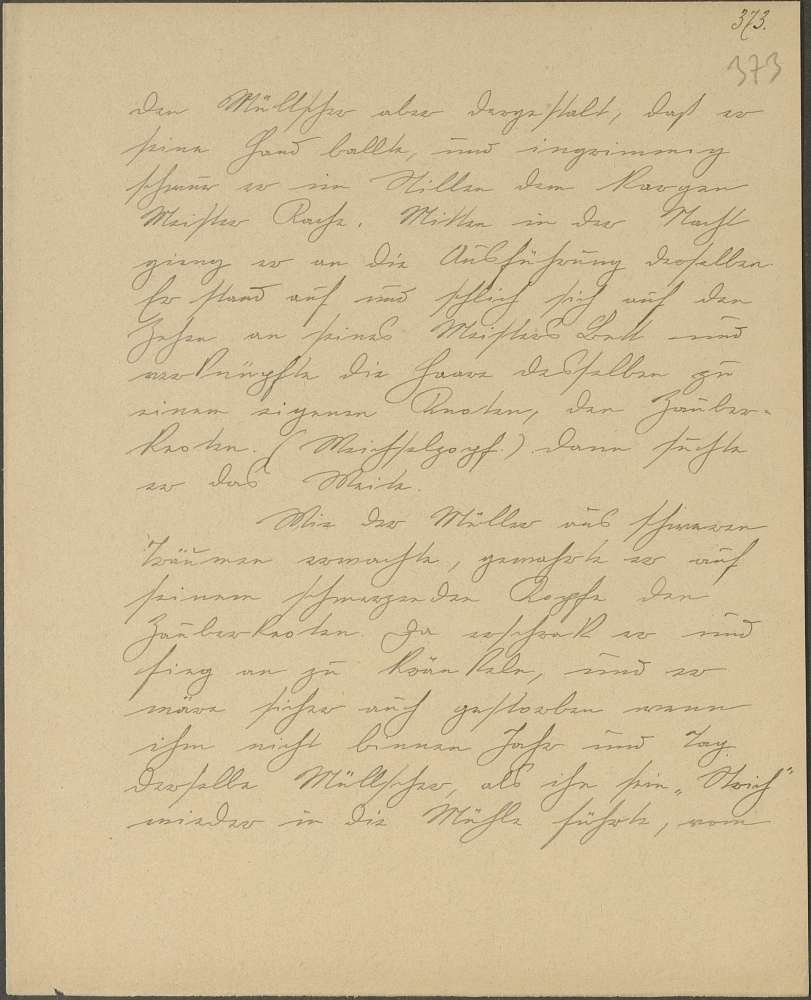 373.
373
den Müllscher aber dergestalt, daß er
seine Hand ballte, und ingrimmig
schwur er im Stillen dem kargen
Meister Rache. Mitten in der Nacht
gieng er an die Ausführung derselben.
Er stand auf und schlich sich auf den
Zehen an seines Meisters Bett und
verknüpfte die Haare desselben zu
einem eigenen Knoten, den Zauber-
knoten. (Weichselzopf.) dann suchte
er das Weite.
Wie der Müller aus schweren
Träumen erwachte, gewahrte er auf
seinem schmerzenden Kopfe den
Zauberknoten. Da erschrak er und
fieng an zu kränkeln, und er
wäre sicher auch gestorben wenn
ihm nicht binnen Jahr und Tag
derselbe Müllscher, als ihn sein „Strich"
wieder in die Mühle führte, vom